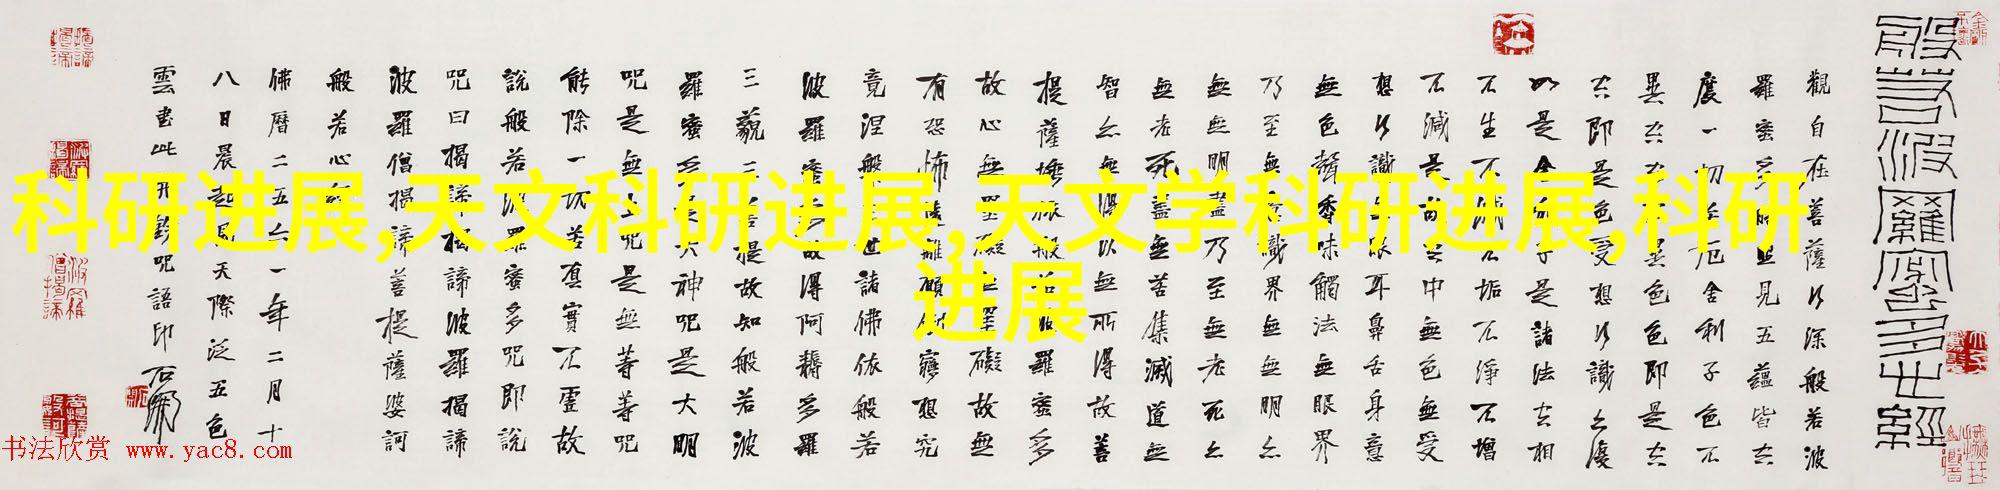 科研进展,天文科研进展,天文学科研进展,科研
进展
般若波羅蜜多心經
觀自在菩薩行深般若波
羅蜜多時照見五蘊皆空
度一切苦厄舍利子色不
異空空不異色色即是空
空即是色受想行識亦復
如是舍利子是諸法空相
不生不滅不垢不淨不增
不減是故空中無色無受
想行識無眼耳鼻舌身意
無色聲香味觸法無眼界
乃至無意識界無無明亦
無無明盡乃至無老死亦
無老死盡無苦集滅道無
智亦無得以無所得故菩
提薩埵依般若波羅蜜多
故心無罣礙無罣礙故無
有恐怖遠離顛倒夢想究
竟涅槃三世諸佛依般若
波羅蜜多故得阿耨多羅
三藐三菩提故知般若波
羅蜜多是大神咒是大明
咒是無上咒是無等等咒
能除一切苦真實不虛故
說般若波羅蜜多咒即說
咒曰揭諦揭諦波羅揭諦
波羅僧揭諦菩提薩婆訶
般若心經
佛曆二五六一年二月十
八日晨起見天際泛五色
雲書此并鈐咒語印
书法欣赏 www.yac8.com